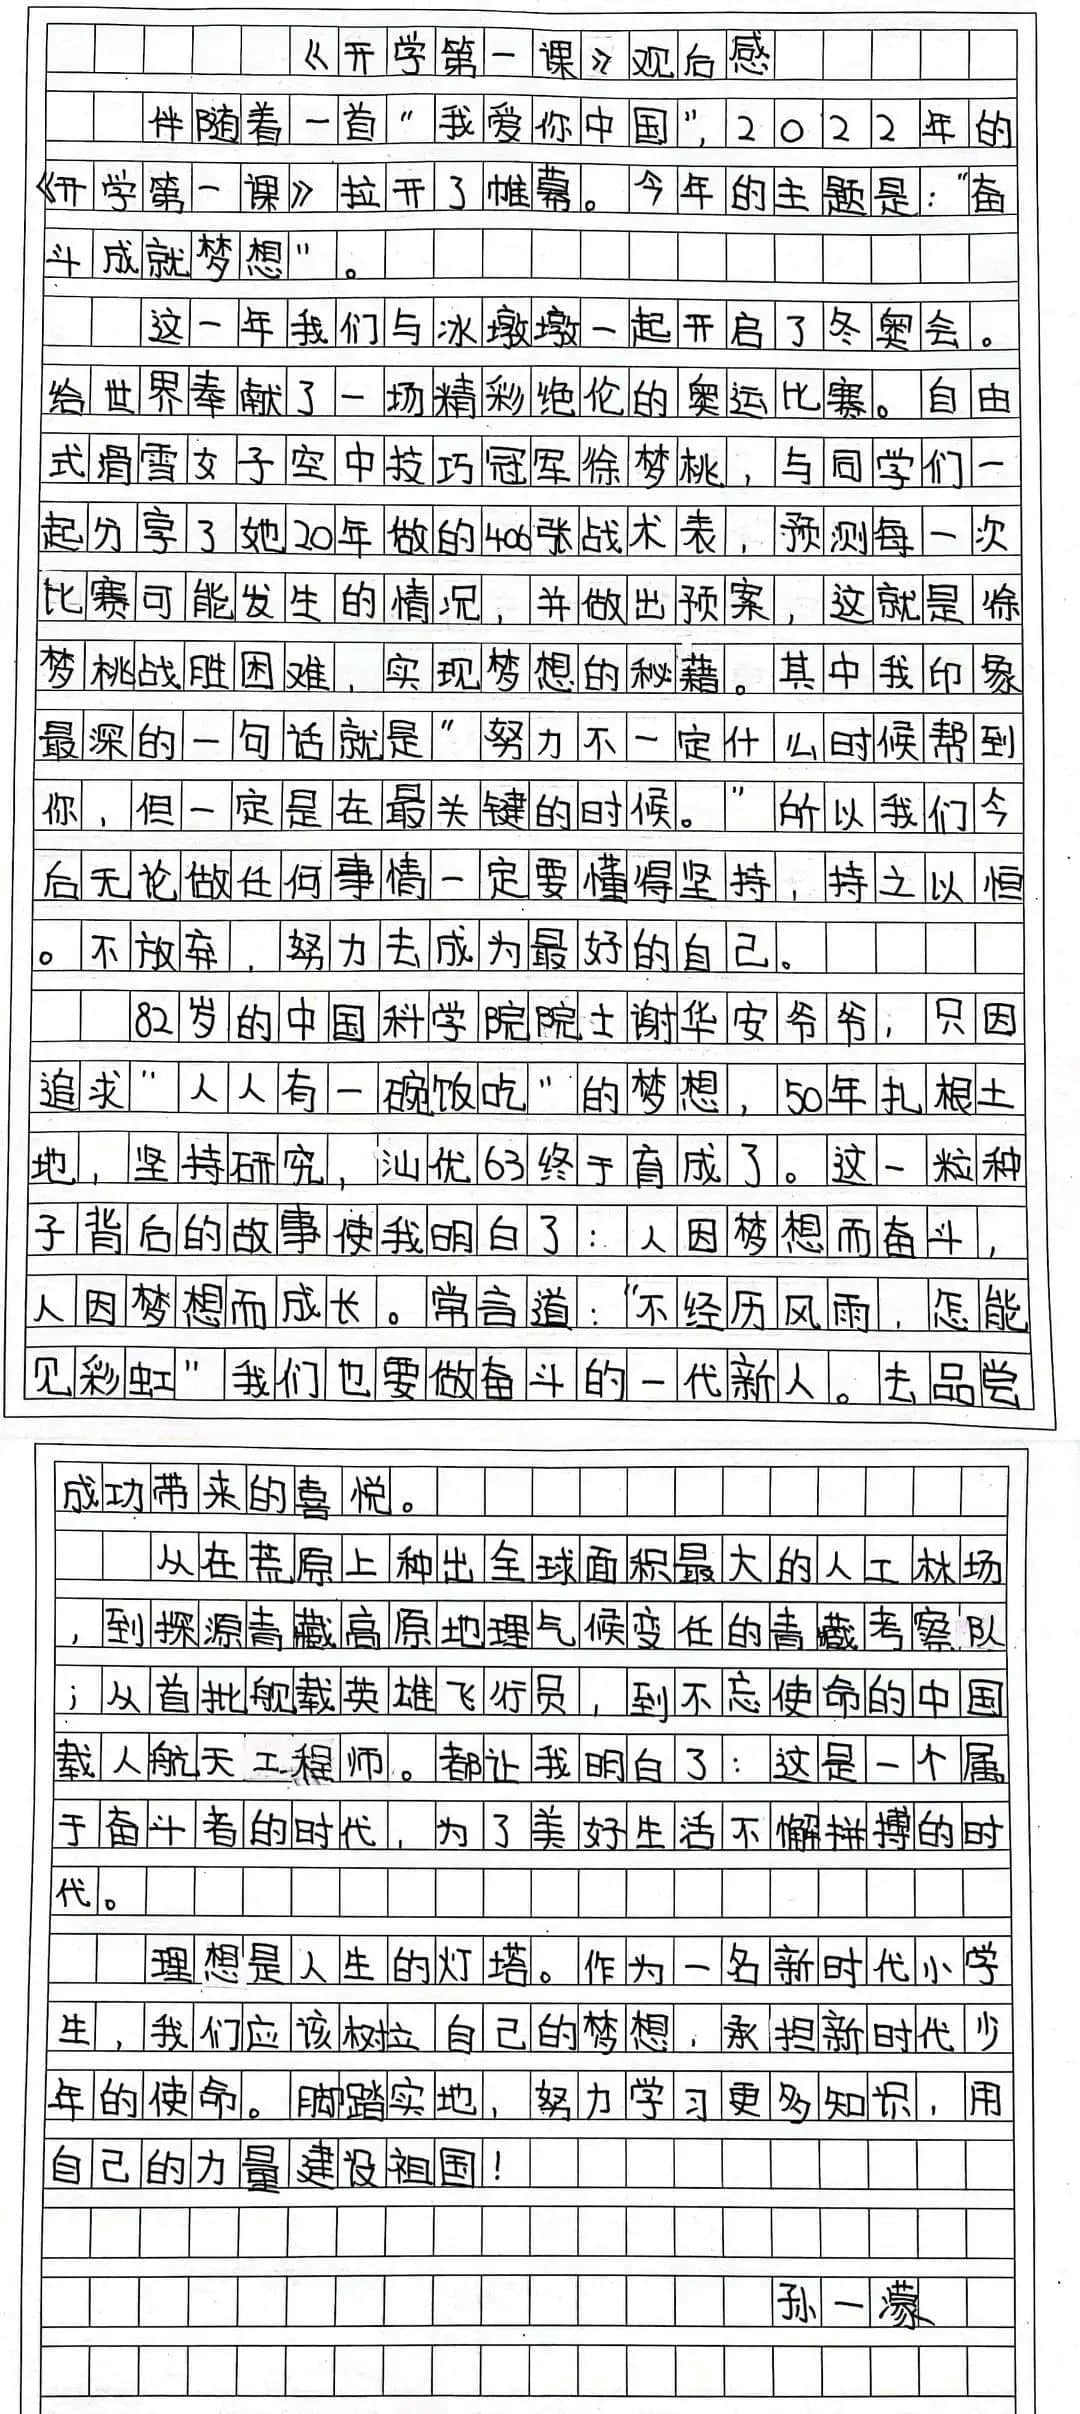 《开学第一课》观后感
伴随着一首“我爱你中国”，2022年的
《开学第一课》拉开了帷幕。今年的主题是：“奋
斗成就梦想”。
这一年我们与冰墩墩一起开启了冬奥会。
给世界奉献了一场精彩绝伦的奥运比赛。自由
式滑雪女子空中技巧冠军徐梦桃，与同学们一
起分享了她20年做的406张战术表，预测每一次
比赛可能发生的情况，并做出预案，这就是徐
梦桃战胜困难，实现梦想的秘藉。其中我印象
最深的一句话就是“努力不一定什么时候帮到
你，但一定是在最关键的时候。”所以我们今
后无论做任何事情一定要懂得坚持，持之以恒
。不放弃，努力去成为最好的自己。
82岁的中国科学院院士谢华安爷爷，只因
追求“人人有一碗饭吃”的梦想，50年扎根土
地，坚持研究，汕优63终于育成了。这一粒种
子背后的故事使我明白了：人因梦想而奋斗，
人因梦想而成长。常言道：“不经历风雨，怎能
见彩虹”我们也要做奋斗的一代新人。去品尝
成功带来的喜悦。
从在荒原上种出全球面积最大的人工林场
，到探源青藏高原地理气候变任的青藏考察队
；从首批舰载英雄飞行员，到不忘使命的中国
载人航天工程师。都让我明白了：这是一个属
于奋斗者的时代，为了美好生活不懈拼搏的时
代。
理想是人生的灯塔。作为一名新时代小学
生，我们应该树立自己的梦想，承担新时代少
年的使命。脚踏实地，努力学习更多知识，用
自己的力量建设祖国！
孙一濛